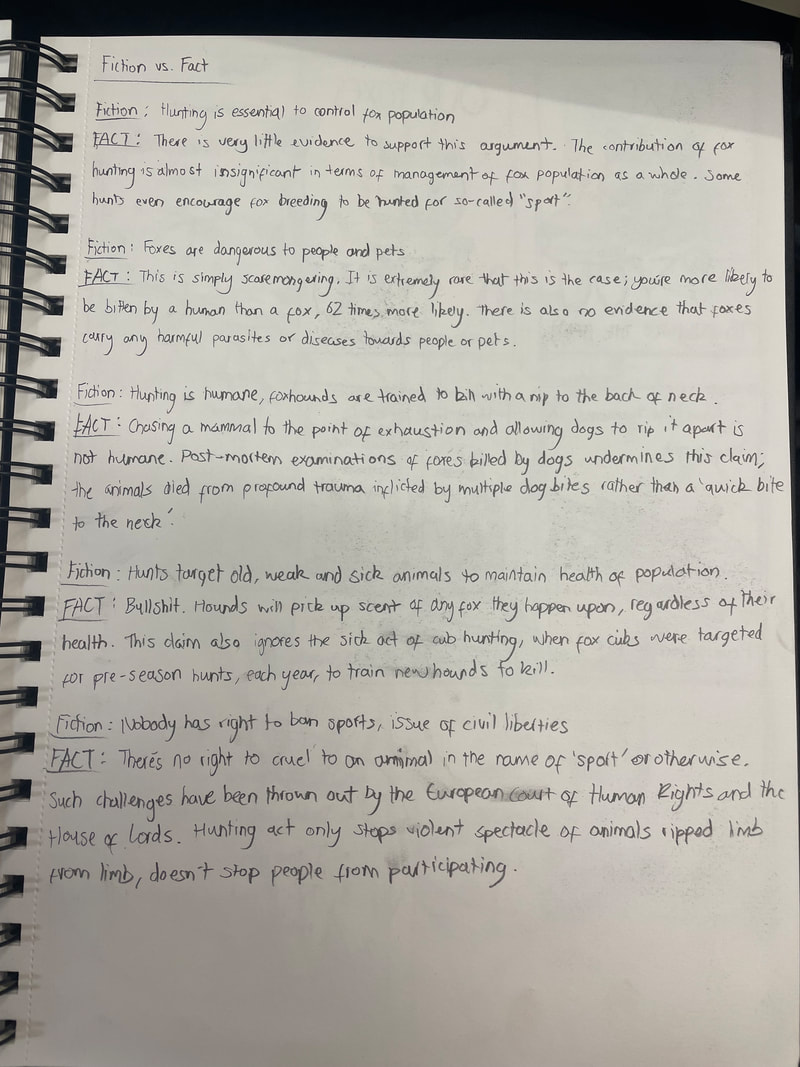 Fiction vs. Fact
Fiction: Hunting is essential to control fox population
FACT: There is very little evidence to support this argument. The contribution of fox
hunting is almost insignificant in terms of management of fox population as a whole. Some
hunts even encourage fox breeding to be hunted for so-called "sport".
Fiction: Foxes are dangerous to people and pets
FACT: This is simply scaremongering. It is extremely rare that this is the case; you're more likely to
be bitten by a human than a fox, 62 times more likely. There is also no evidence that foxes
carry any harmful parasites or diseases towards people or pets.
Fiction: Hunting is humane, foxhounds are trained to kill with a nip to the back of neck.
FACT: Chasing a mammal to the point of exhaustion and allowing dogs to rip it apart is
not humane. Post-mortem examinations of foxes killed by dogs undermines this claim;
the animals died from profound trauma inflicted by multiple dog bites rather than a 'quick bite
to the neck'.
Fiction: Hunts target old, weak and sick animals to maintain health of population.
FACT: Bullshit. Hounds will pick up scent of any fox they happen upon, regardless of their
health. This claim also ignores the sick act of cub hunting, when fox cubs were targeted
for pre-season hunts, each year, to train new hounds to kill.
Fiction: Nobody has right to ban sports, issue of civil liberties
FACT: There's no right to cruel to an animal in the name of 'sport' or otherwise.
Such challenges have been thrown out by the European court of Human Rights and the
House of Lords. Hunting act only stops violent spectacle of animals ripped limb
from limb, doesn't stop people from participating.